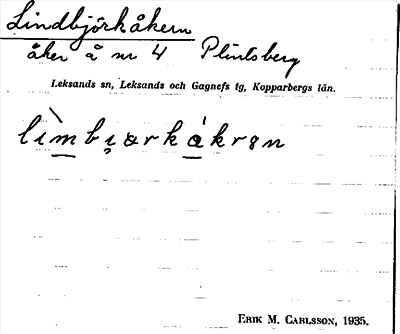 Lindbjörkåkern
åker å nr 4 Plintsberg
Leksands sn, Leksands och Gagnefs tg, Kopparbergs län.
lìmbi̯ærkákrən
ERIK M. CARLSSON, 1935.